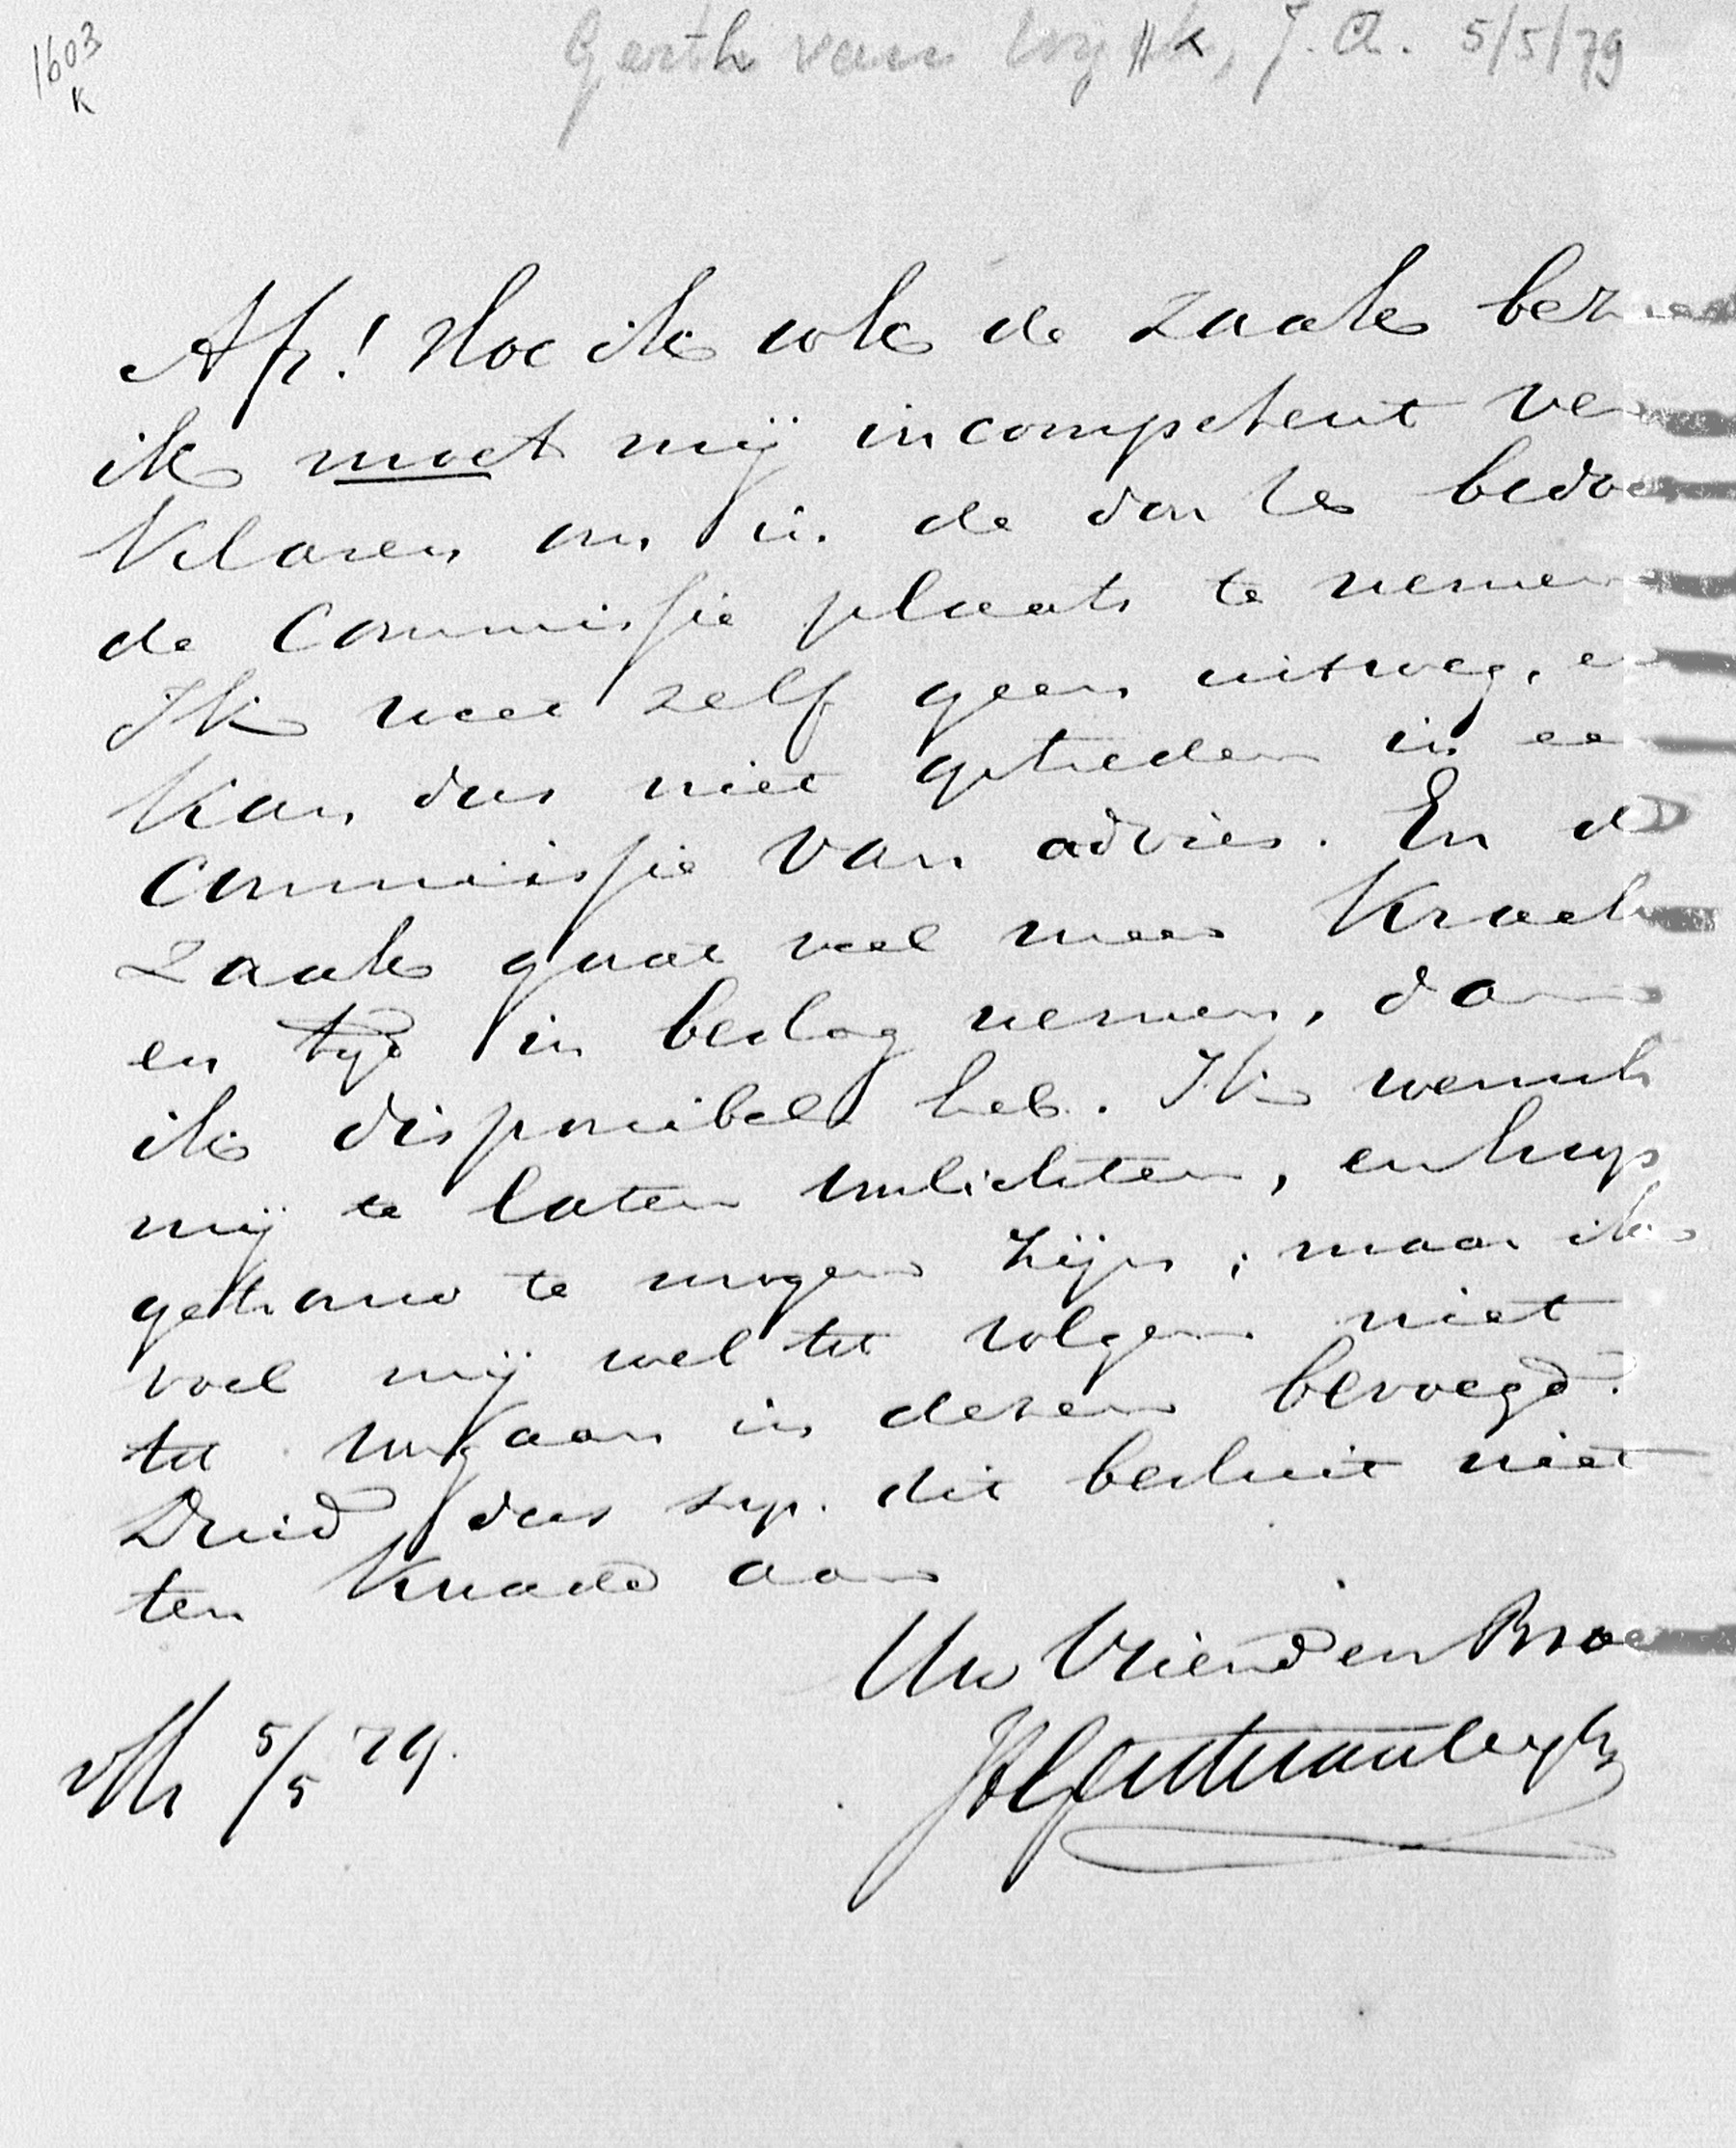 1603
K
Gerth van Wijk, J. A. 5/5/79
Afr! Hoe ik ook de zaak bezie
ik moet mij incompetent ver
klaren om in de door U bedoe
de Commissie plaats te nemen
Ik weet zelf geen uitweg, en
kan dus niet optreden in ee
Commissie van advies. En d
zaak gaat veel meer Krach
en tijd in beslag nemen, dan
ik disponibel heb. Ik wensch
mij te laten voorlichten, en hoop
getrouw te mogen zijn; maar ik
voel mij wel tot volgen niet
tot voorgaan in dezen bevoegd.
Duid dus s.v.p. dit besluit niet
ten kwade aan
Uw Vriend en Broe
JAGerthvanWyk
5/5 79.